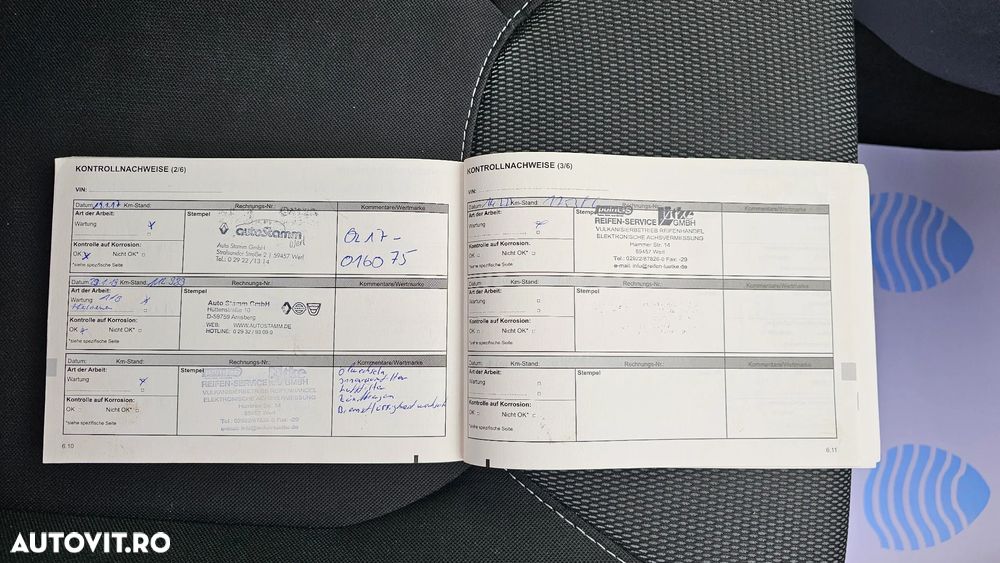 KONTROLLNACHWEISE (2/6)
VIN:
Datum: 19.1.17 Km-Stand: Rechnungs-Nr.: Kommentare/Wertmarke
Art der Arbeit:
Wartung
Stempel
autoStamm
Werl
Auto Stamm GmbH
Stralsunder Straße 2 | 59457 Werl
Tel.: 0 29 22 / 13 14
0217-
016075
Kontrolle auf Korrosion:
OK Nicht OK*
*siehe spezifische Seite
Km-Stand: Rechnungs-Nr.: Kommentare/Wertmarke
Art der Arbeit:
Wartung
Stempel
Auto Stamm GmbH
Hüttenstraße 10
D-59759 Arnsberg
WEB: WWW.AUTOSTAMM.DE
HOTLINE: 0 29 32 / 93 09 0
Kontrolle auf Korrosion:
OK Nicht OK*
*siehe spezifische Seite
Datum: Km-Stand: Rechnungs-Nr.: Kommentare/Wertmarke
Art der Arbeit:
Wartung
Stempel
REIFEN-SERVICE GMBH
VULKANISIERBETRIEB REIFENHANDEL
ELEKTRONISCHE ACHSVERMESSUNG
Hammer Str. 14
59457 Werl
Tel.: 02922/87826-0 Fax -29
e-mail: info@reifen-luetke.de
Ölwechsel
Innenraumfilter
Luftfilter
Zündkerzen
Bremsflüssigkeit
Kontrolle auf Korrosion:
OK Nicht OK*
*siehe spezifische Seite
6.10
KONTROLLNACHWEISE (3/6)
VIN:
Datum Km-Stand: Rechnungs-Nr.: Kommentare/Wertmarke
Art der Arbeit:
Wartung
Stempel
REIFEN-SERVICE GMBH
VULKANISIERBETRIEB REIFENHANDEL
ELEKTRONISCHE ACHSVERMESSUNG
Hammer Str. 14
59457 Werl
Tel.: 02922/87826-0 Fax -29
e-mail: info@reifen-luetke.de
Kontrolle auf Korrosion:
OK Nicht OK*
*siehe spezifische Seite
Datum: Km-Stand: Rechnungs-Nr.: Kommentare/Wertmarke
Art der Arbeit:
Wartung
Stempel
Kontrolle auf Korrosion:
OK Nicht OK*
*siehe spezifische Seite
Datum: Km-Stand: Rechnungs-Nr.: Kommentare/Wertmarke
Art der Arbeit:
Wartung
Stempel
Kontrolle auf Korrosion:
OK Nicht OK*
*siehe spezifische Seite
6.11
AUTOVIT.RO